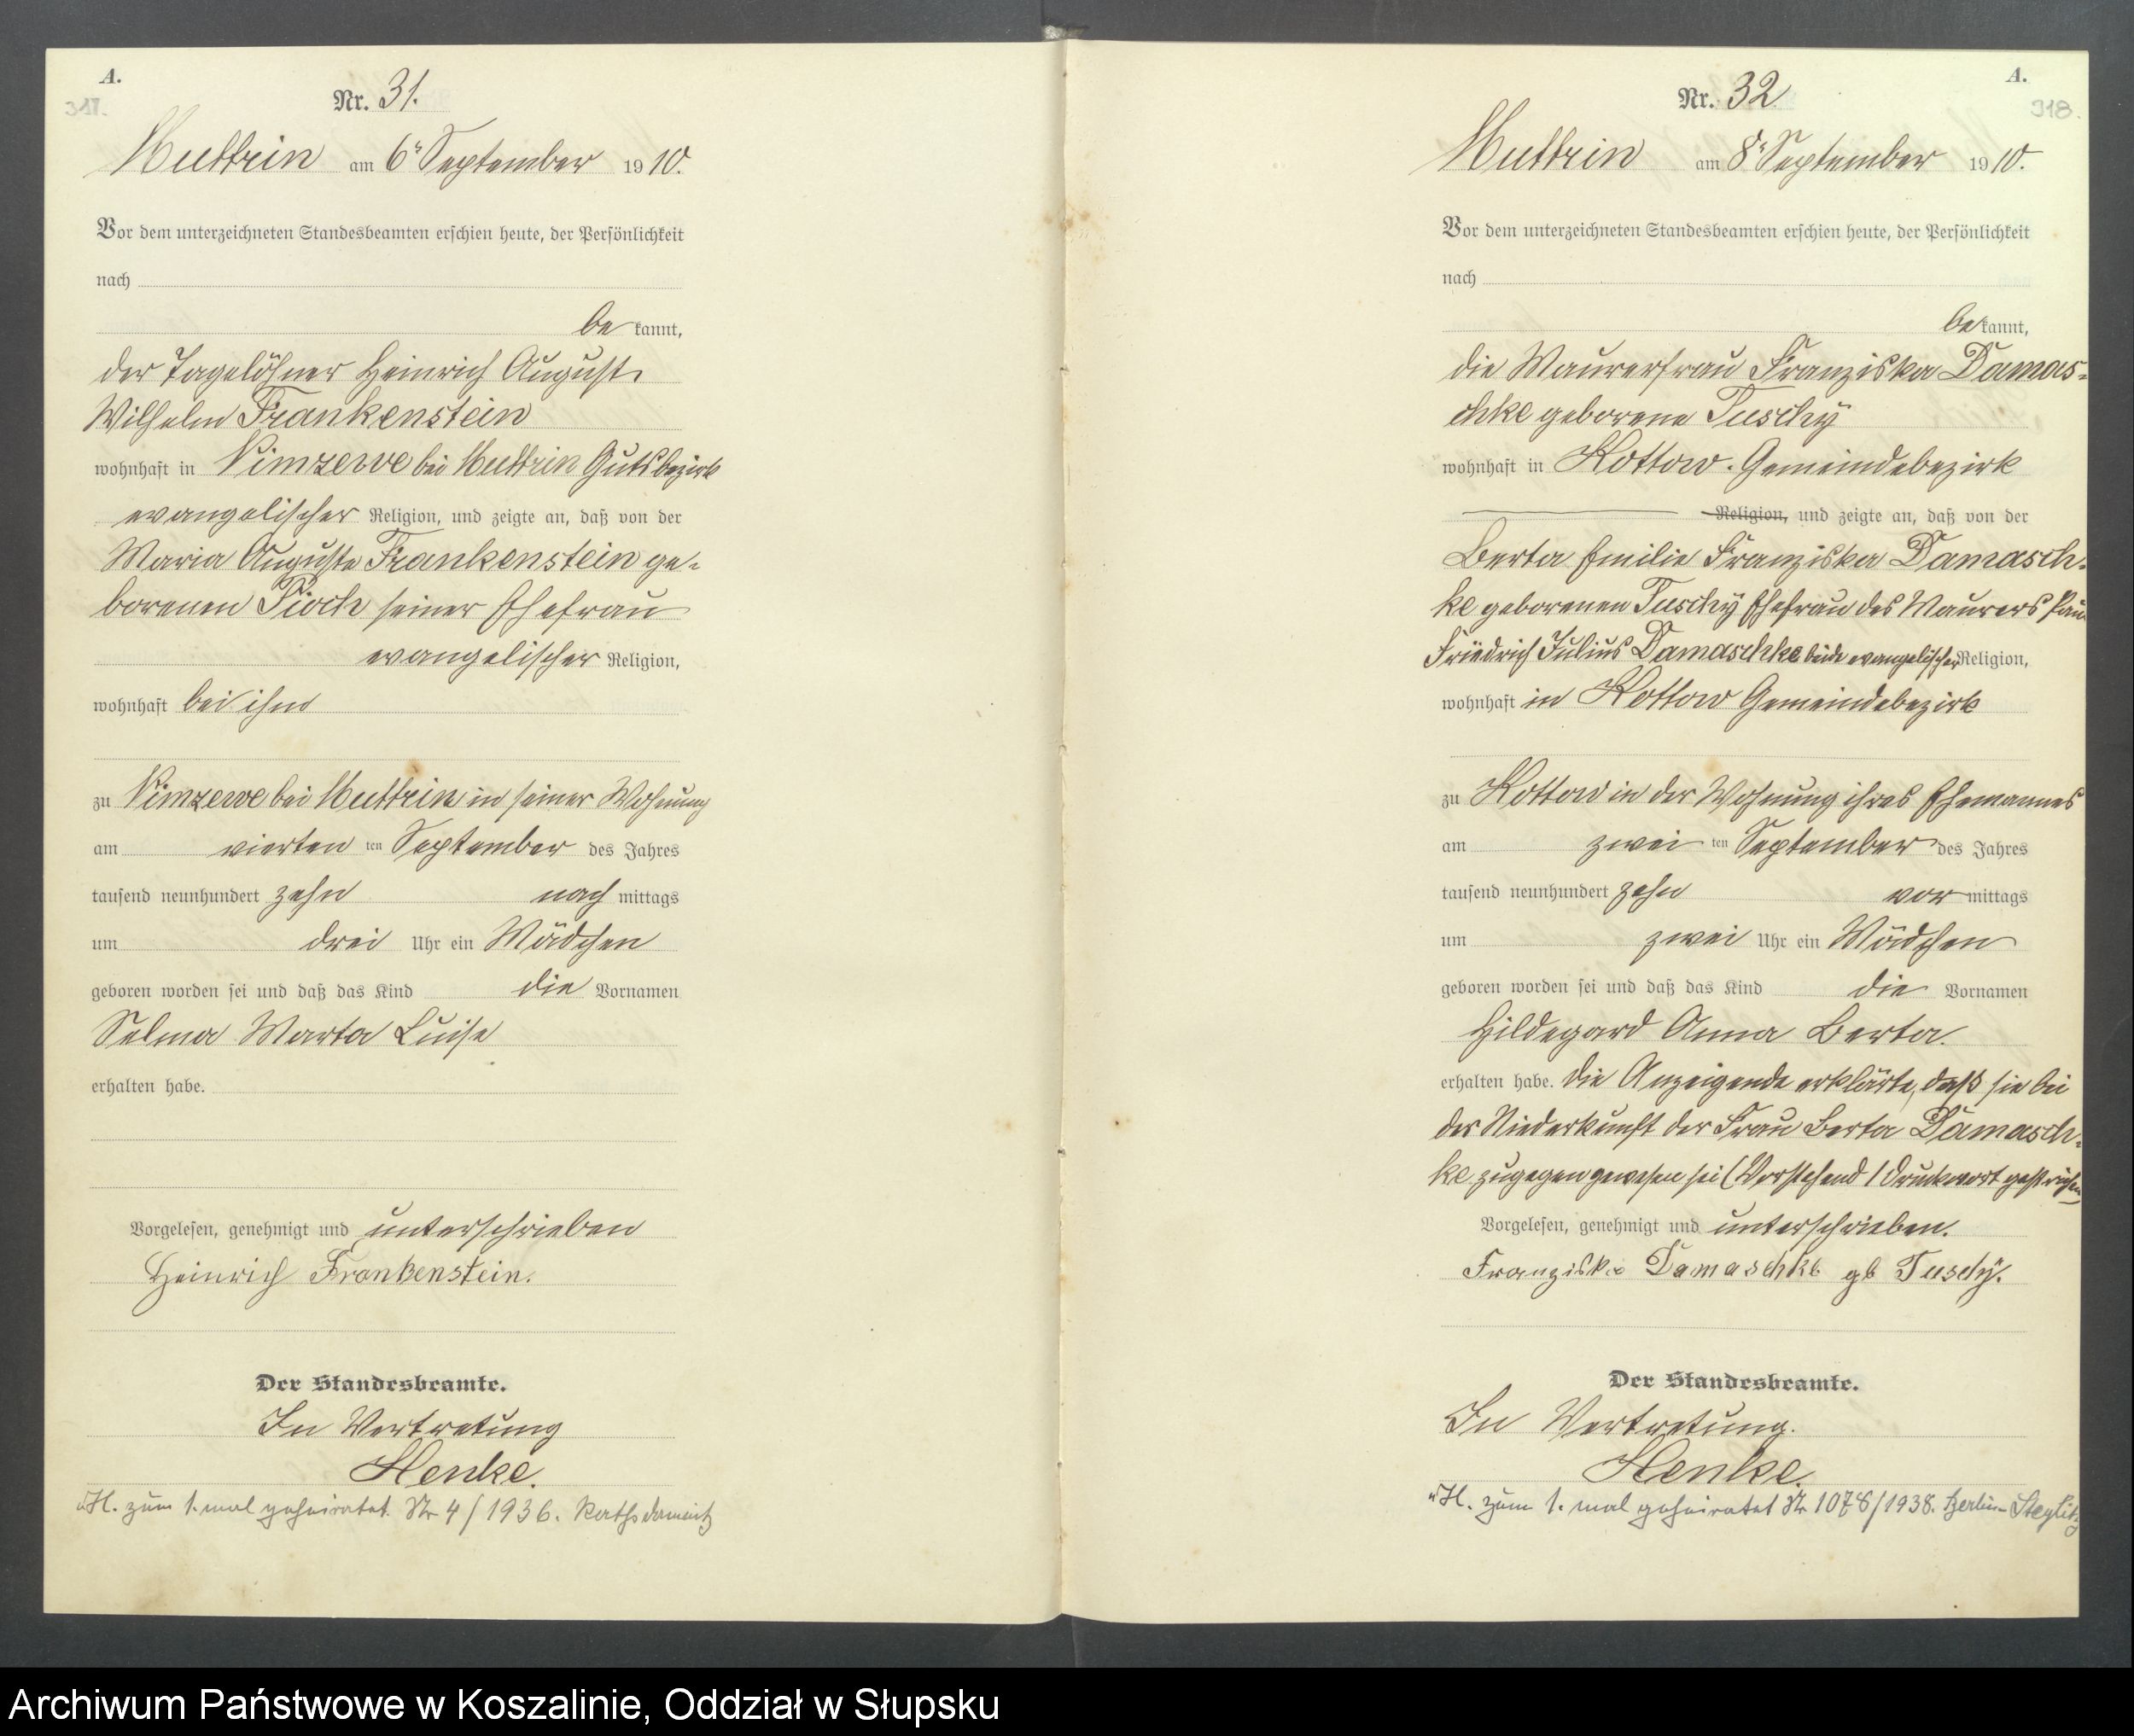 A.
317.
Nr. 31.
Muttrin am 6ᵗ September 1910.
Vor dem unterzeichneten Standesbeamten erschien heute, der Persönlichkeit
nach
be kannt,
der Tagelöhner Heinrich August
Wilhelm Frankenstein
wohnhaft in Nimzewe bei Muttrin Gutsbezirk
evangelischer Religion, und zeigte an, daß von der
Maria Auguste Frankenstein ge-
borenen Pioch seiner Ehefrau
evangelischer Religion,
wohnhaft bei ihm
zu Nimzewe bei Muttrin in seiner Wohnung
am vierten ten September des Jahres
tausend neunhundert zehn nach mittags
um drei Uhr ein Mädchen
geboren worden sei und daß das Kind die Vornamen
Selma Marta Luise
erhalten habe.
Vorgelesen, genehmigt und unterschrieben
Heinrich Frankenstein.
Der Standesbeamte.
In Vertretung
Henke.
H. zum 1. mal geheiratet. Nr 4/1936. Rathsdamnitz
A.
318.
Nr. 32
Muttrin am 8ᵗ September 1910.
Vor dem unterzeichneten Standesbeamten erschien heute, der Persönlichkeit
nach
be kannt,
die Maurerfrau Franziska Damas-
chke geborene Tuschÿ
wohnhaft in Kottow. Gemeindebezirk
Religion, und zeigte an, daß von der
Berta Emilie Franziska Damasch-
ke geborenen Tuschÿ Ehefrau des Maurers Paul
Friedrich Julius Damaschke beide evangelischer Religion,
wohnhaft in Kottow Gemeindebezirk
zu Kottow in der Wohnung ihres Ehemannes
am zwei ten September des Jahres
tausend neunhundert zehn vor mittags
um zwei Uhr ein Mädchen
geboren worden sei und daß das Kind die Vornamen
Hildegard Anna Berta.
erhalten habe. Die Anzeigende erklärte, daß sie bei
der Niederkunft der Frau Berta Damasch-
ke zugegen gewesen sei (Vorstehend 1 Druckwort gestrichen
Vorgelesen, genehmigt und unterschrieben.
Franziska Damaschke gb Tuschÿ.
Der Standesbeamte.
In Vertretung.
Henke.
H. zum 1. mal geheiratet Nr 1078/1938. Berlin-Steglitz
Archiwum Państwowe w Koszalinie, Oddział w Słupsku